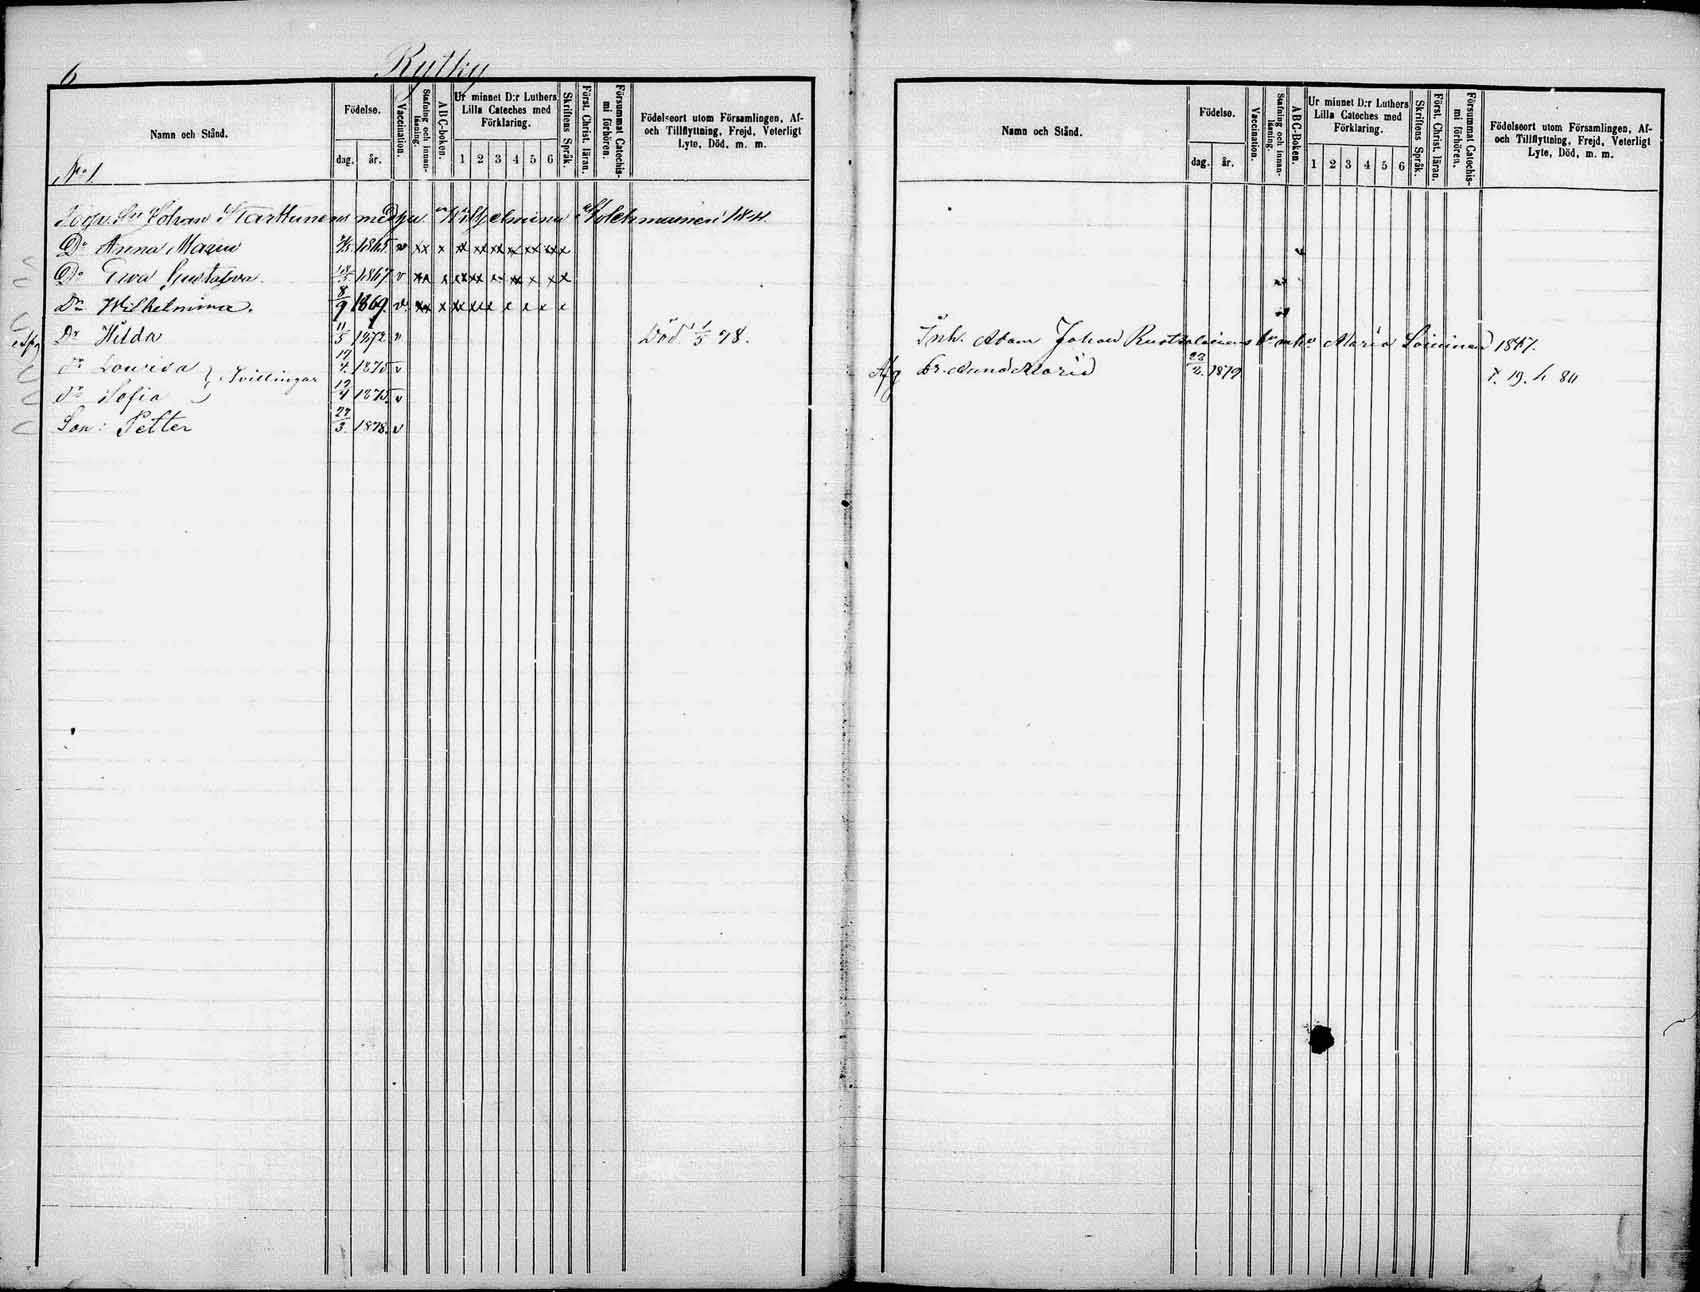 6
Rytky
Namn och Stånd.
Födelse.
dag. år.
Vaccination.
Stafning och innan-läsning.
ABC-boken.
Ur minnet D:r Luthers Lilla Cateches med Förklaring.
1 2 3 4 5 6
Skriftens Språk.
Först. Christ. läran.
Försummat Catechis-mi förhören.
Födelseort utom Församlingen, Af- och Tillflyttning, Frejd, Veterligt Lyte, Död, m. m.
N:o 1
Johan Wilhelmina 184
Dr Anna Maria 1865 v x x x x x x x x x
Dr Eva Gustafva. 1867 v x x x x x x x x
Dr Wilhelmina. 8/9 1869. v x x x x x x x x
Dr Hilda 11/5 1872 v Död 1/5 78.
dr Lovisa 12/4 1875 v
Tvillingar
dr Sofia 12/4 1875. v
Son: Petter 27/3. 1878. v
Namn och Stånd.
Födelse.
dag. år.
Vaccination.
Stafning och innan-läsning.
ABC-Boken.
Ur minnet D:r Luthers Lilla Cateches med Förklaring.
1 2 3 4 5 6
Skriftens Språk.
Först. Christ. läran.
Försummat Catechis-mi förhören.
Födelseort utom Församlingen, Af- och Tillflyttning, Frejd, Veterligt Lyte, Död, m. m.
Inh. Adam Johan Maria Loininen 1847.
dr. Anna Maria 1879 † 19. 4 80